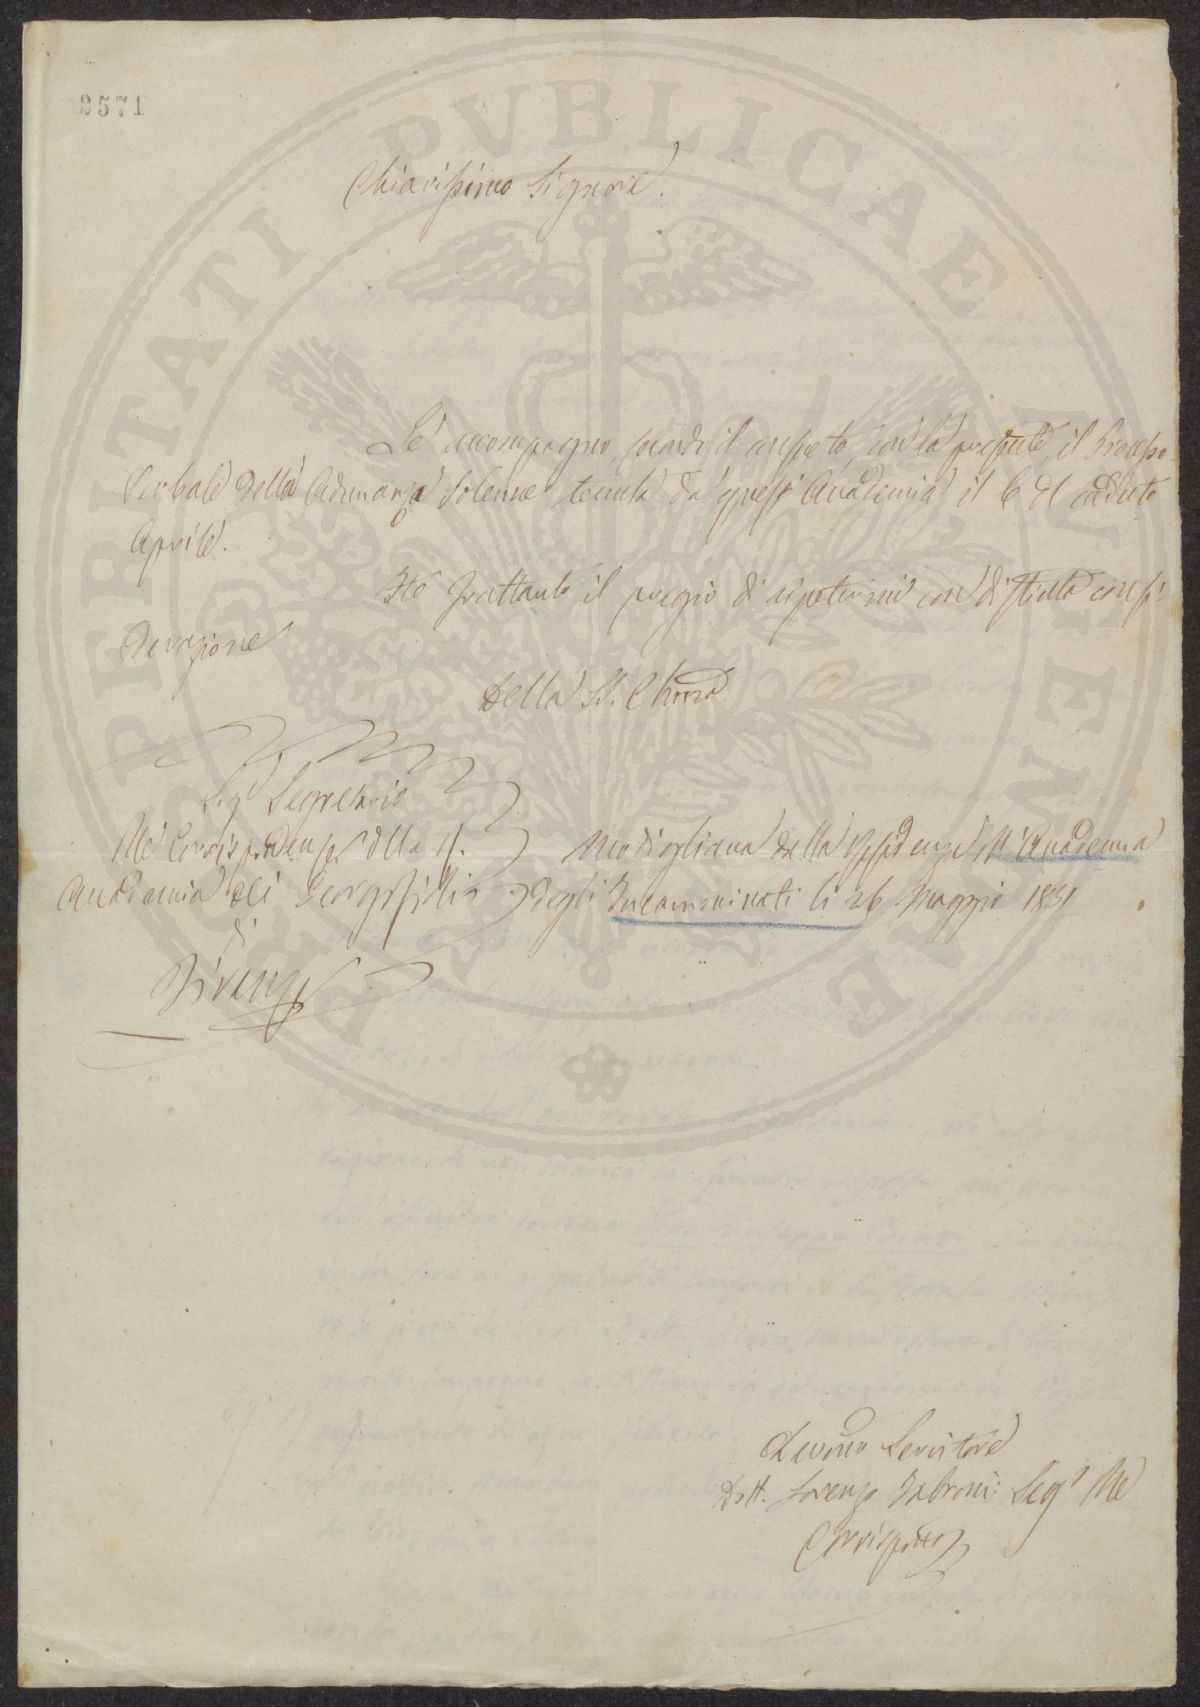 2571
PROSPERITATI PVBLICAE AVGENDAE
Chiarissimo Signore.
Le accompagno, secondo il consueto, con la presente, il Processo
Verbale della Adunanza Solenne tenuta da quest' Accademia il 6 del caduto
Aprile.
Ho frattanto il pregio di ripetermi con distinta consi-
derazione
Della S. V. Chiarma
Sigr Segretario
Alle Corrispondenze della I. R.
Accademia dei Georgofili
di
Firenze
Modigliana dalla Residenza dell' Accademia
degli Incamminati li 26 Maggio 1851
Devmo Servitore
Dott. Lorenzo Fabroni Segr Alle
Corrispze